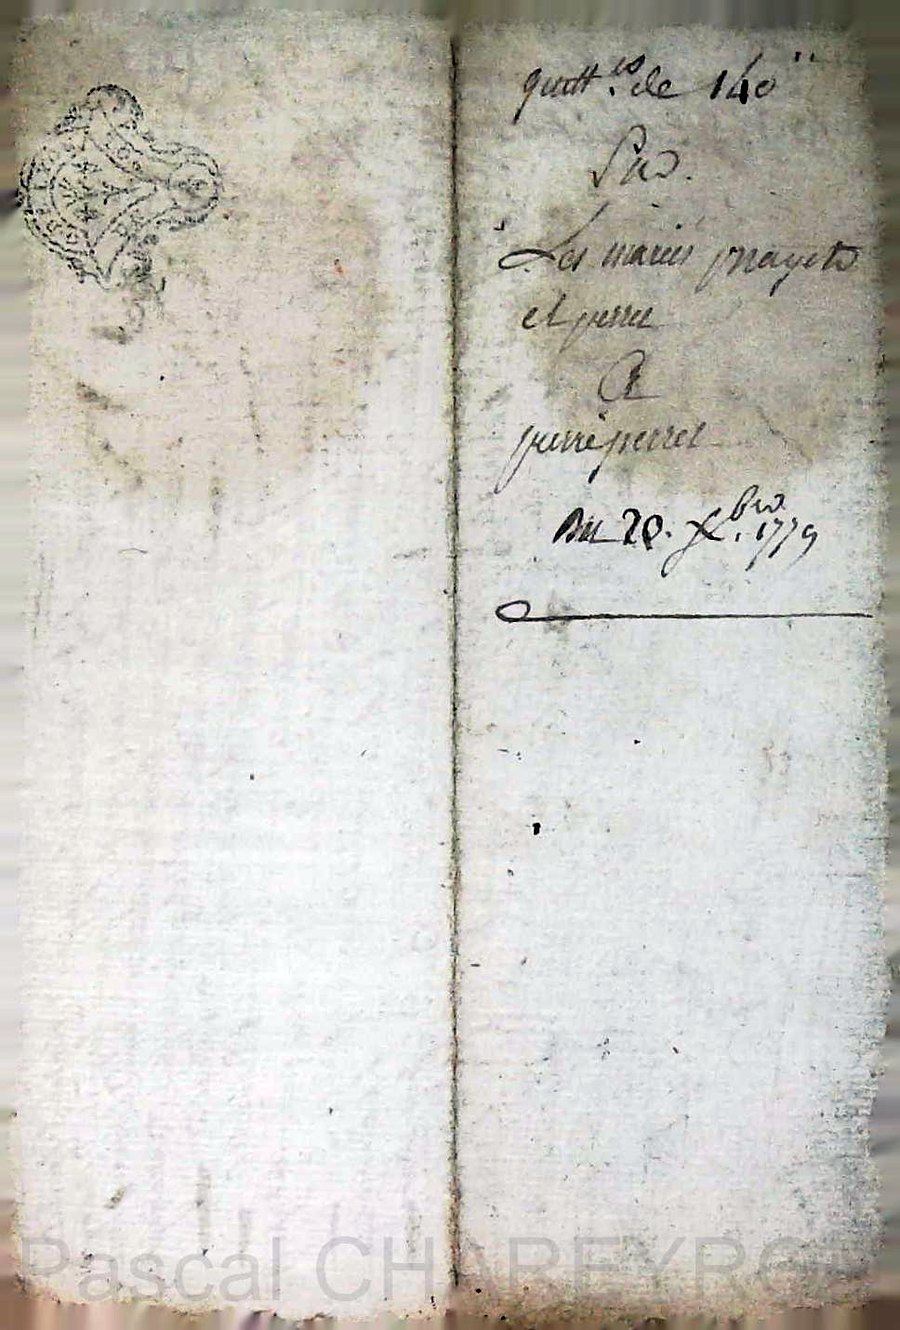 quitt.es de 140"
Par
Les mariés
et perret
A
pierre perret
Du 20. Xbre. 1779
Pascal CHAREYRON